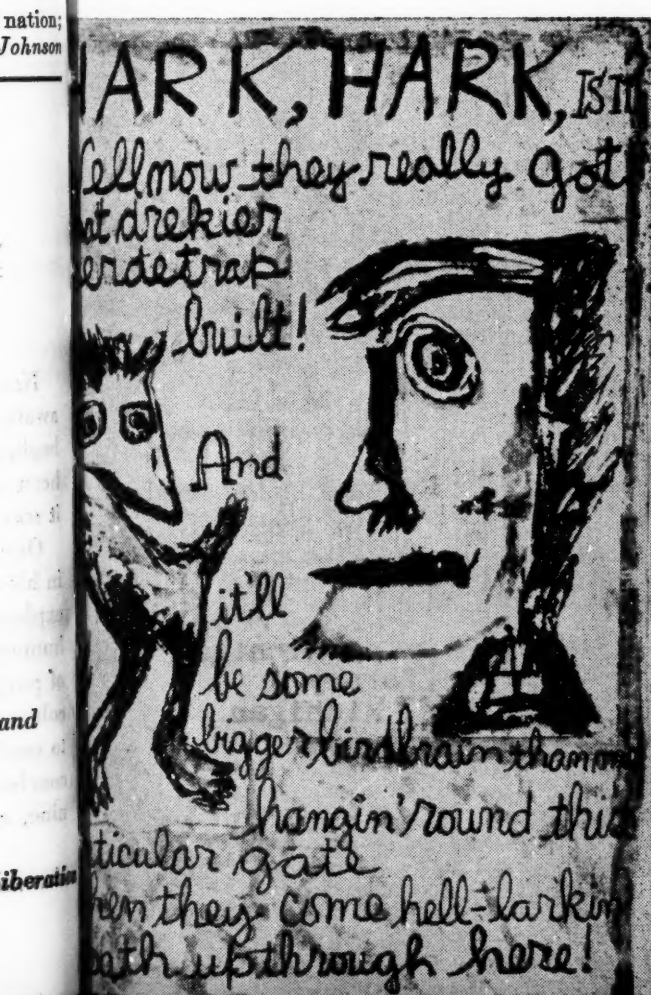 nation;
Johnson
and
iberation
ARK, HARK, IS IT
ell now they really got
at drekier
erdetrap
built!
And
it'll
be some
bigger birdbrain than m
hangin' round this
ticular gate
hen they come hell-larkin
ath upthrough here!